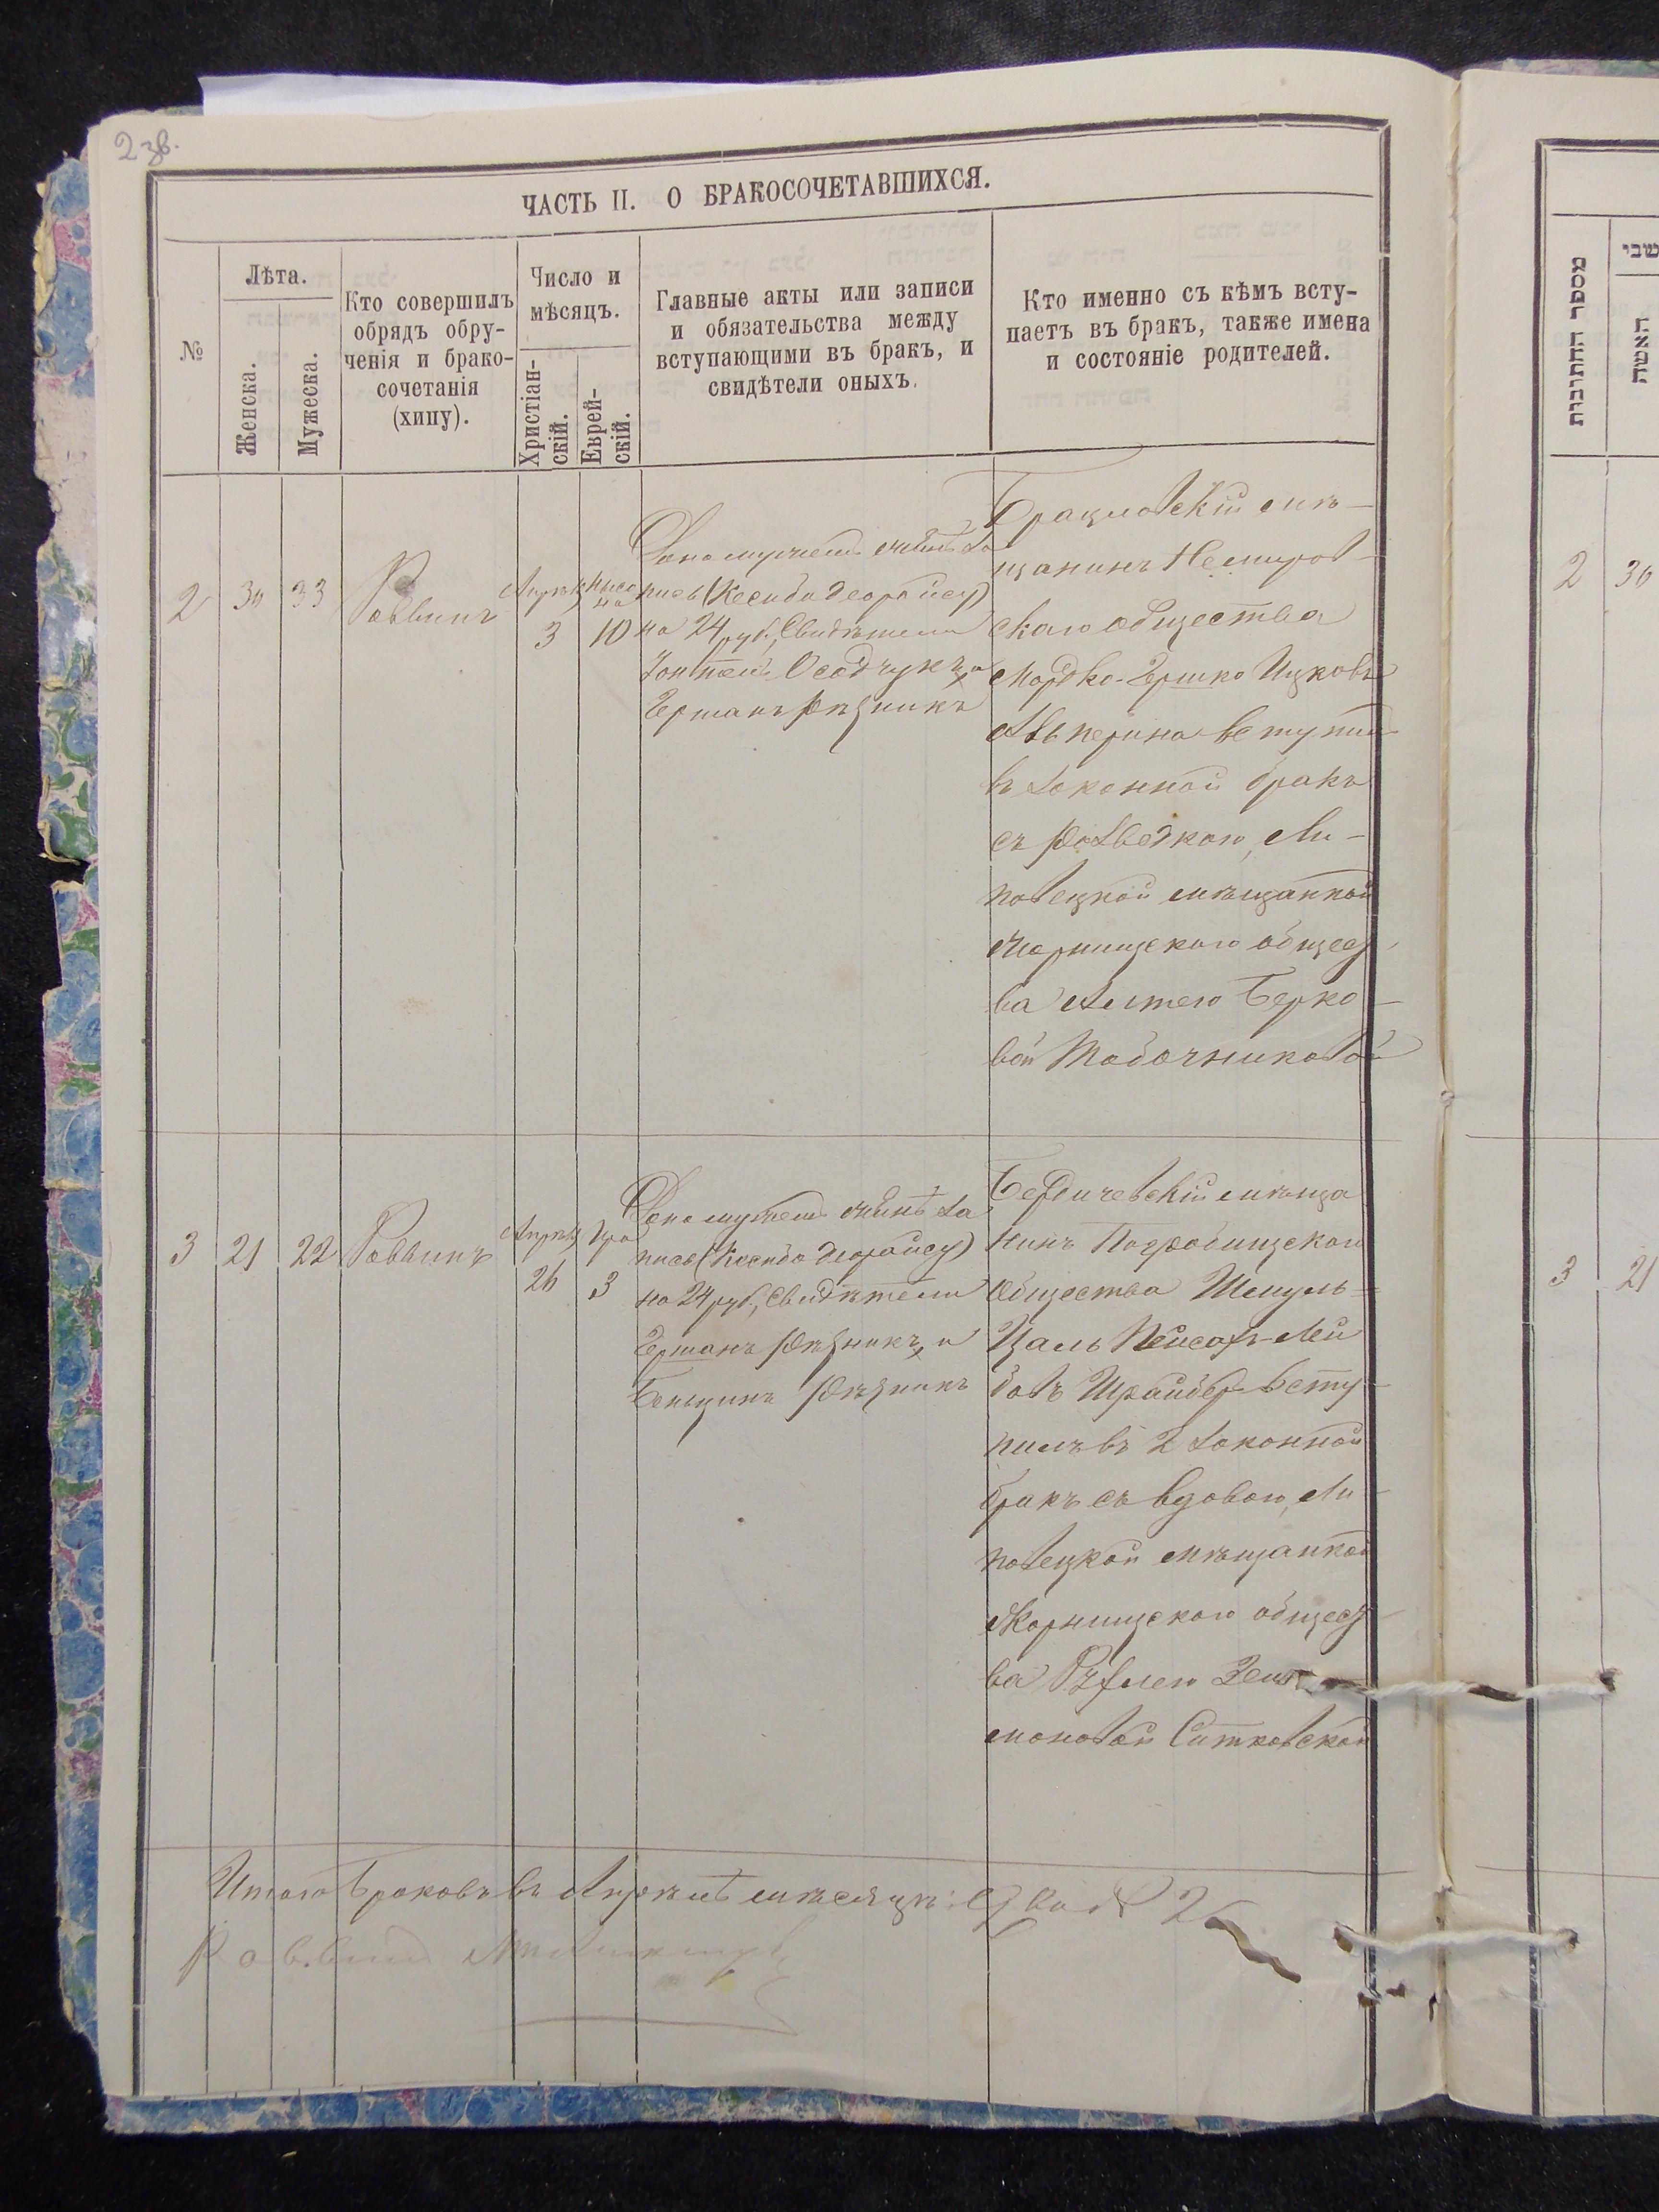 2 зв.
ЧАСТЬ II. О БРАКОСОЧЕТАВШИХСЯ.
№
Лѣта.
Женска.
Мужеска.
Кто совершилъ
обрядъ обру-
ченія и брако-
сочетанія
(хипу).
Число и
мѣсяцъ.
Христіан-
скій.
Еврей-
скій.
Главные акты или записи
и обязательства между
вступающими въ бракъ, и
свидѣтели оныхъ.
Кто именно съ кѣмъ всту-
паетъ въ бракъ, также имена
и состояніе родителей.
2
30
33
Раввинъ
Апрѣль
3
Нисо
на
10
за
пись (Ксиба Деорайсу)
на 24 руб., Свидѣтели
Осадчукъ, и
Гершанъ Рѣзникъ
Брацлавскій мѣ-
щанинъ Немиров-
скаго общества
Мордко-Гершко Ицковъ
вступил
въ законной бракъ
съ разведкою, Ли-
повецкой мѣщанкой
общес
ва Берко-
вой Табачниковой
3
21
22
Раввинъ
Апрѣль
26
Іра
3
за
пись (Ксиба Деорайсу)
на 24 руб., Свидѣтели
Гершанъ Рѣзникъ, и
Бенционъ Рѣзникъ
Бердичевскій мѣща
нинъ Погребищскаго
общества Шмуль-
Цаль Пейсахъ-Лей
бовъ Шрайбер всту-
пилъ въ 2 законной
бракъ съ вдовою, Ли-
повецкой мѣщанкой
Жорнищскаго общес
ва Рухлею Зель
моновой Ситковской
Итого браковъ въ Апрѣлѣ мѣсяцѣ: Два № 2
Раввинъ
מספר החתונות
שבי
האשה
2
30
3
21